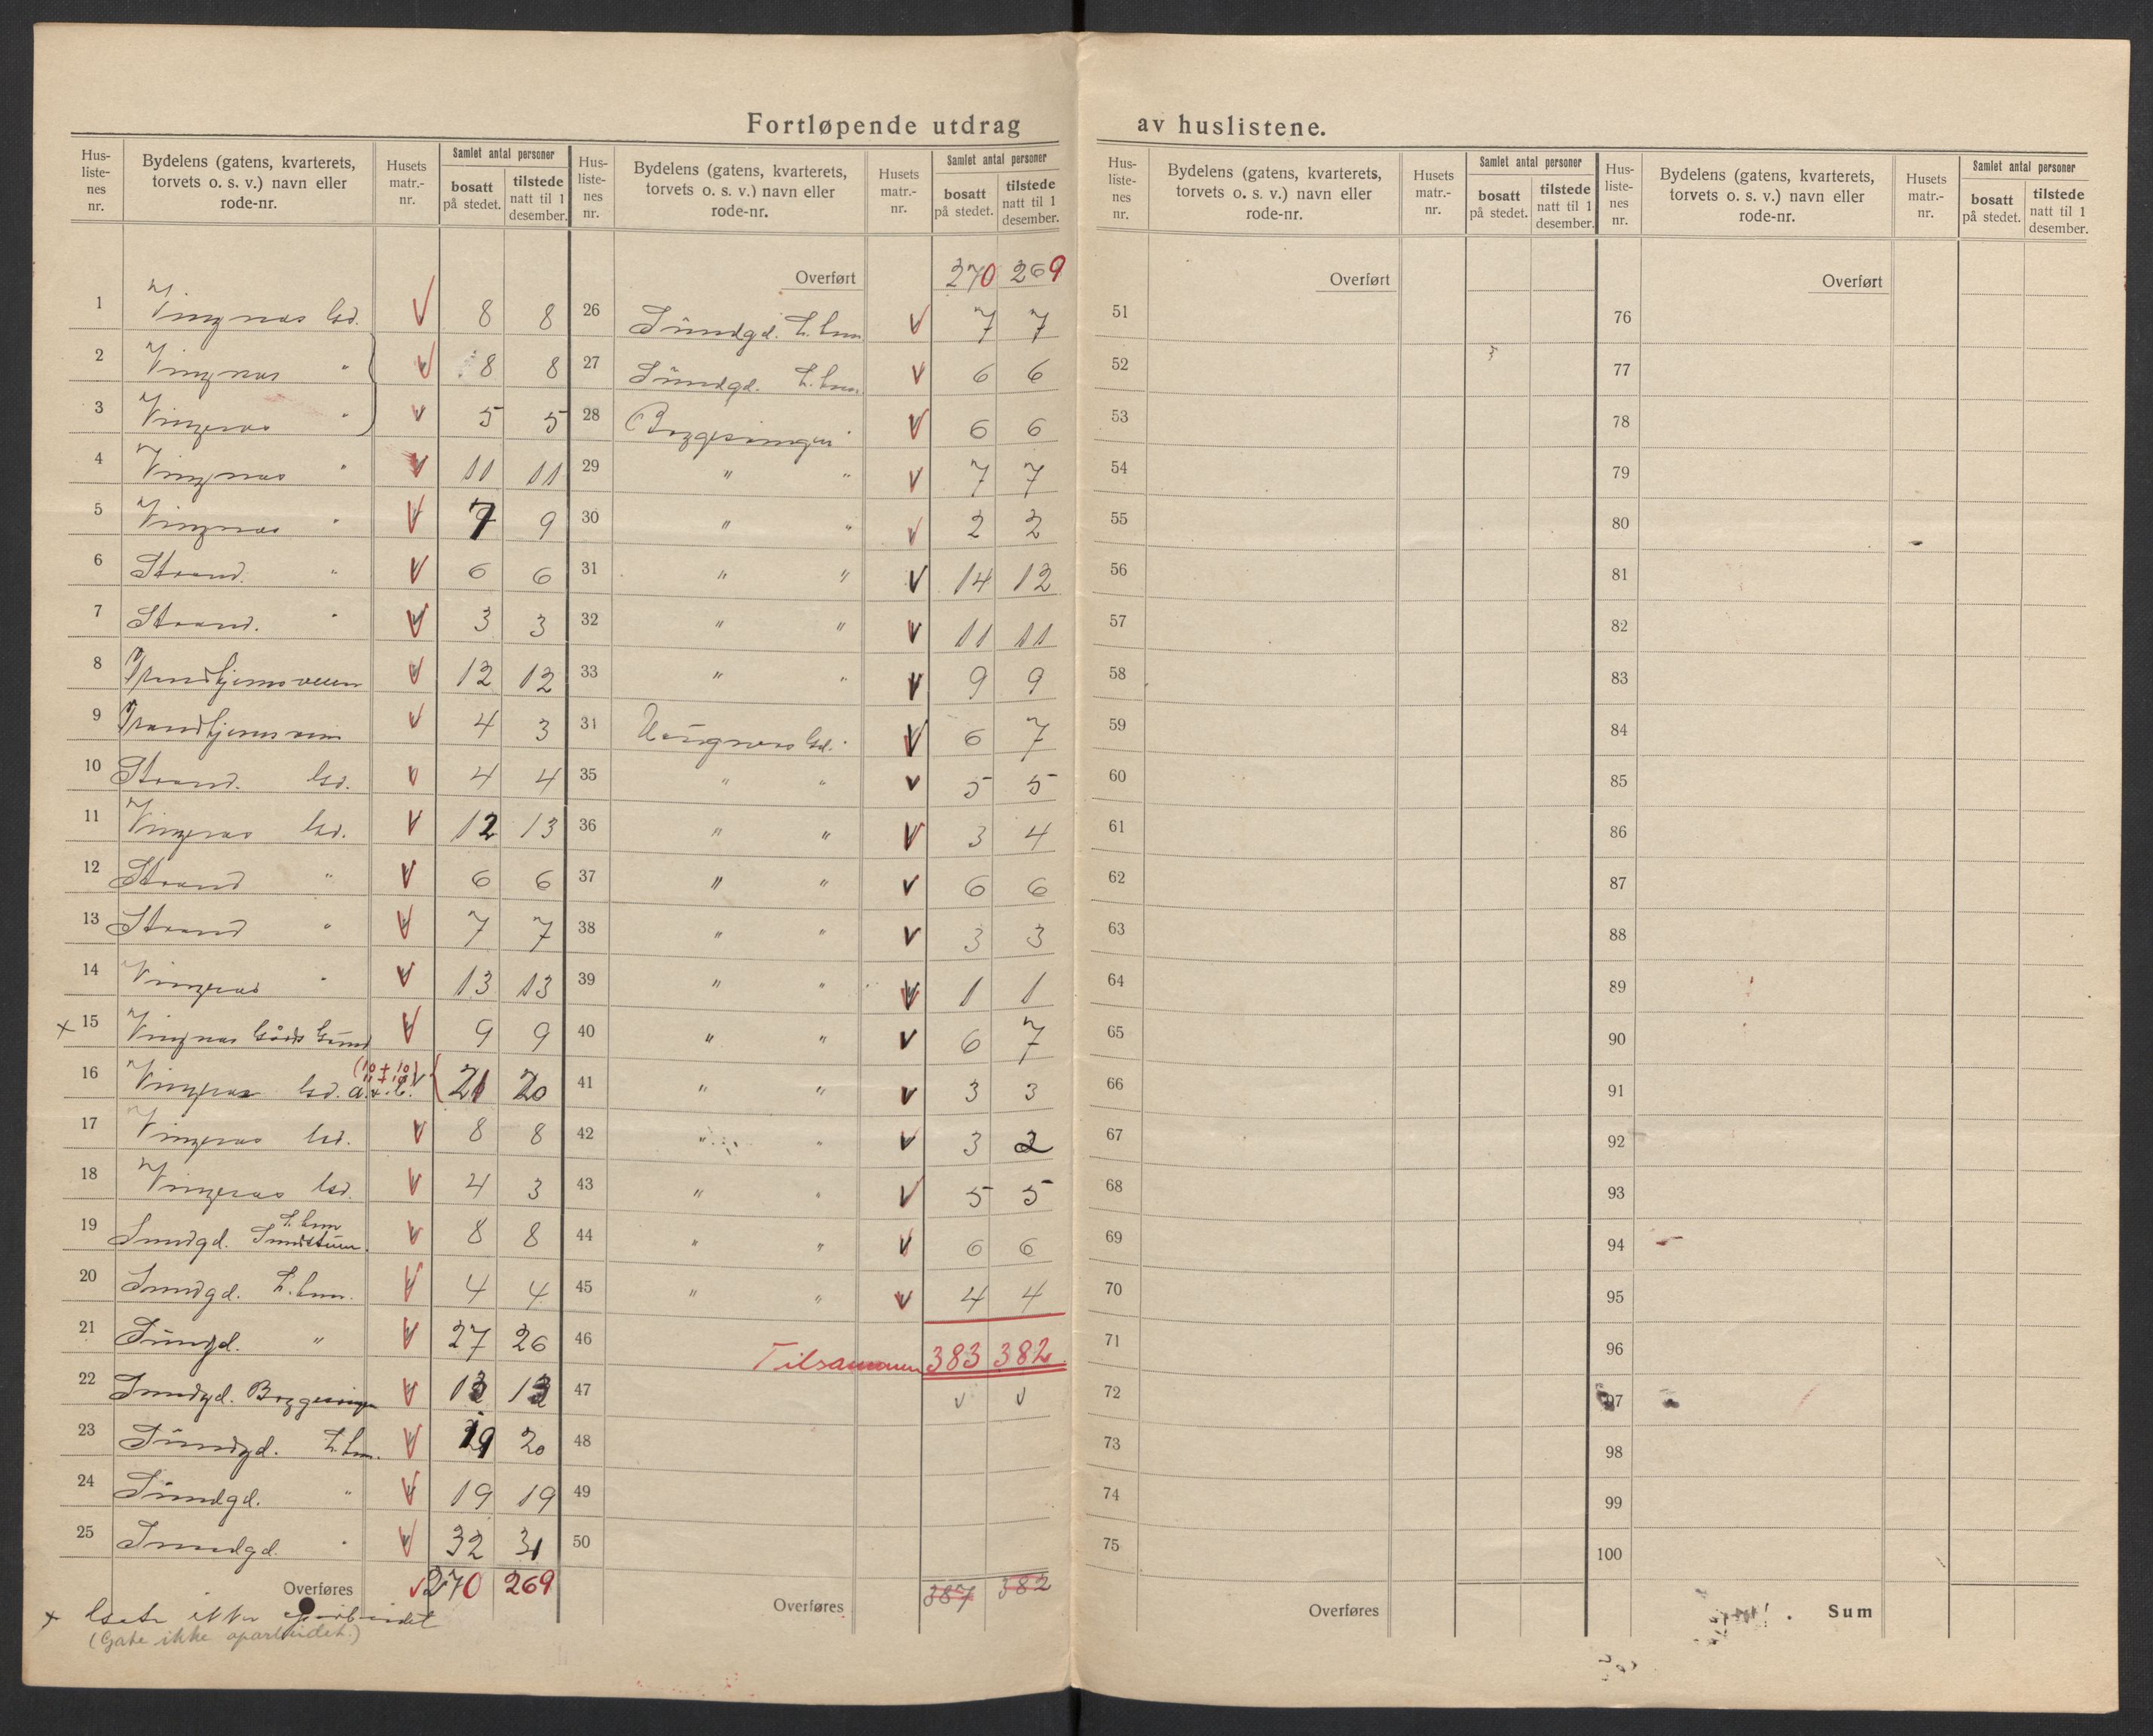 Fortløpende utdrag av huslistene.
Hus-listenes nr. Bydelens (gatens, kvarterets, torvets o. s. v.) navn eller rode-nr. Husets matr.-nr. Samlet antal personer bosatt på stedet. tilstede natt til 1 desember.
1 Vingnas Gd. V 8 8
2 Vingnas " V 8 8
3 Vingnas " V 5 5
4 Vingnas " V 11 11
5 Vingnas " V 7 9
6 Strand. " V 6 6
7 Strand. " V 3 3
8 Trondhjemsveien V 12 12
9 Trondhjemsveien V 4 3
10 Strand. Gd. V 4 4
11 Vingnas Gd. V 12 13
12 Strand " V 6 6
13 Strand " V 7 7
14 Vingnas " V 13 13
x 15 Vingnas V 9 9
16 Vingnas Gd. a. & b. V 21 20
17 Vingnas Gd. V 8 8
18 Vingnas Gd. V 4 3
19 Sundgd. V 8 8
20 Sundgd. V 4 4
21 Sundgd. " V 27 26
22 Sundgd. V
23 Sundgd. V 19 20
24 Sundgd. " V 19 19
25 Sundgd. " V 32 31
Overføres V 270 269
x Gate ikke oparbeidet
(Gate ikke oparbeidet.)
Hus-listenes nr. Bydelens (gatens, kvarterets, torvets o. s. v.) navn eller rode-nr. Husets matr.-nr. Samlet antal personer bosatt på stedet. tilstede natt til 1 desember.
Overført 270 269
26 Sundgd. V 7 7
27 Sundgd. V 6 6
28 V 6 6
29 " " V 7 7
30 " " V 2 2
31 " " V 14 12
32 " " V 11 11
33 " " V 9 9
31 Gd. V 6 7
35 " " V 5 5
36 " " V 3 4
37 " " V 6 6
38 " " V 3 3
39 " " V 1 1
40 " " V 6 7
41 " " V 3 3
42 " " V 3 2
43 " " V 5 5
44 " " V 6 6
45 " " V 4 4
46 Tilsammen 383 382
47 V V
48
49
50
Overføres 387 382
Hus-listenes nr. Bydelens (gatens, kvarterets, torvets o. s. v.) navn eller rode-nr. Husets matr.-nr. Samlet antal personer bosatt på stedet. tilstede natt til 1 desember.
Overført
51
52
53
54
55
56
57
58
59
60
61
62
63
64
65
66
67
68
69
70
71
72
73
74
75
Overføres
Hus-listenes nr. Bydelens (gatens, kvarterets, torvets o. s. v.) navn eller rode-nr. Husets matr.-nr. Samlet antal personer bosatt på stedet. tilstede natt til 1 desember.
Overført
76
77
78
79
80
81
82
83
84
85
86
87
88
89
90
91
92
93
94
95
96
97
98
99
100
Sum